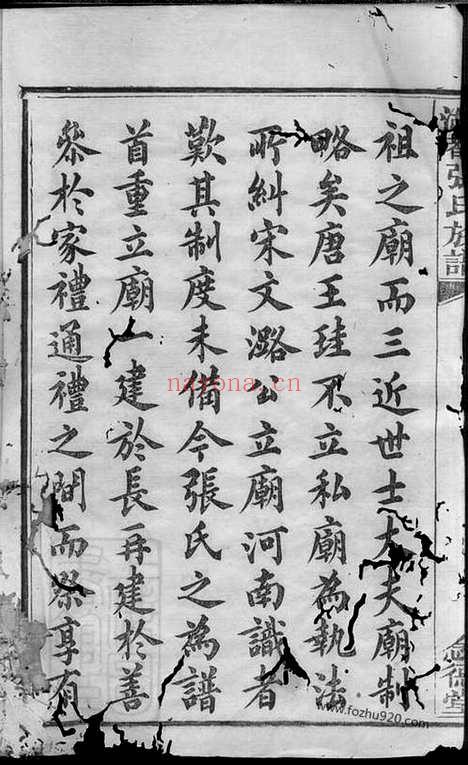 張氏族譜
祖之廟而三近世士大夫廟制
略矣唐王珪不立私廟為執法
所糾宋文潞公立廟河南識者
歎其制度未備今張氏之為譜
首重立廟一建於長再建於善
叅於家禮通禮之間而祭享有
堂
nayona.cn
www.fozhu920.com